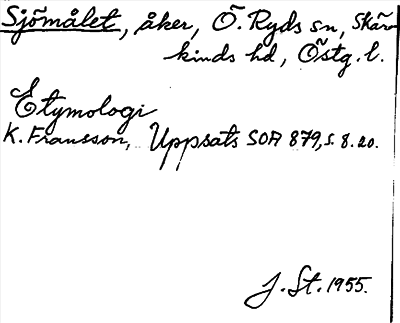 Sjömålet, åker, Ö. Ryds sn, Skär-
kinds hd, Östg. l.
Etymologi
K. Fransson, Uppsats SOA 879, s. 8. 20.
J. St. 1955.